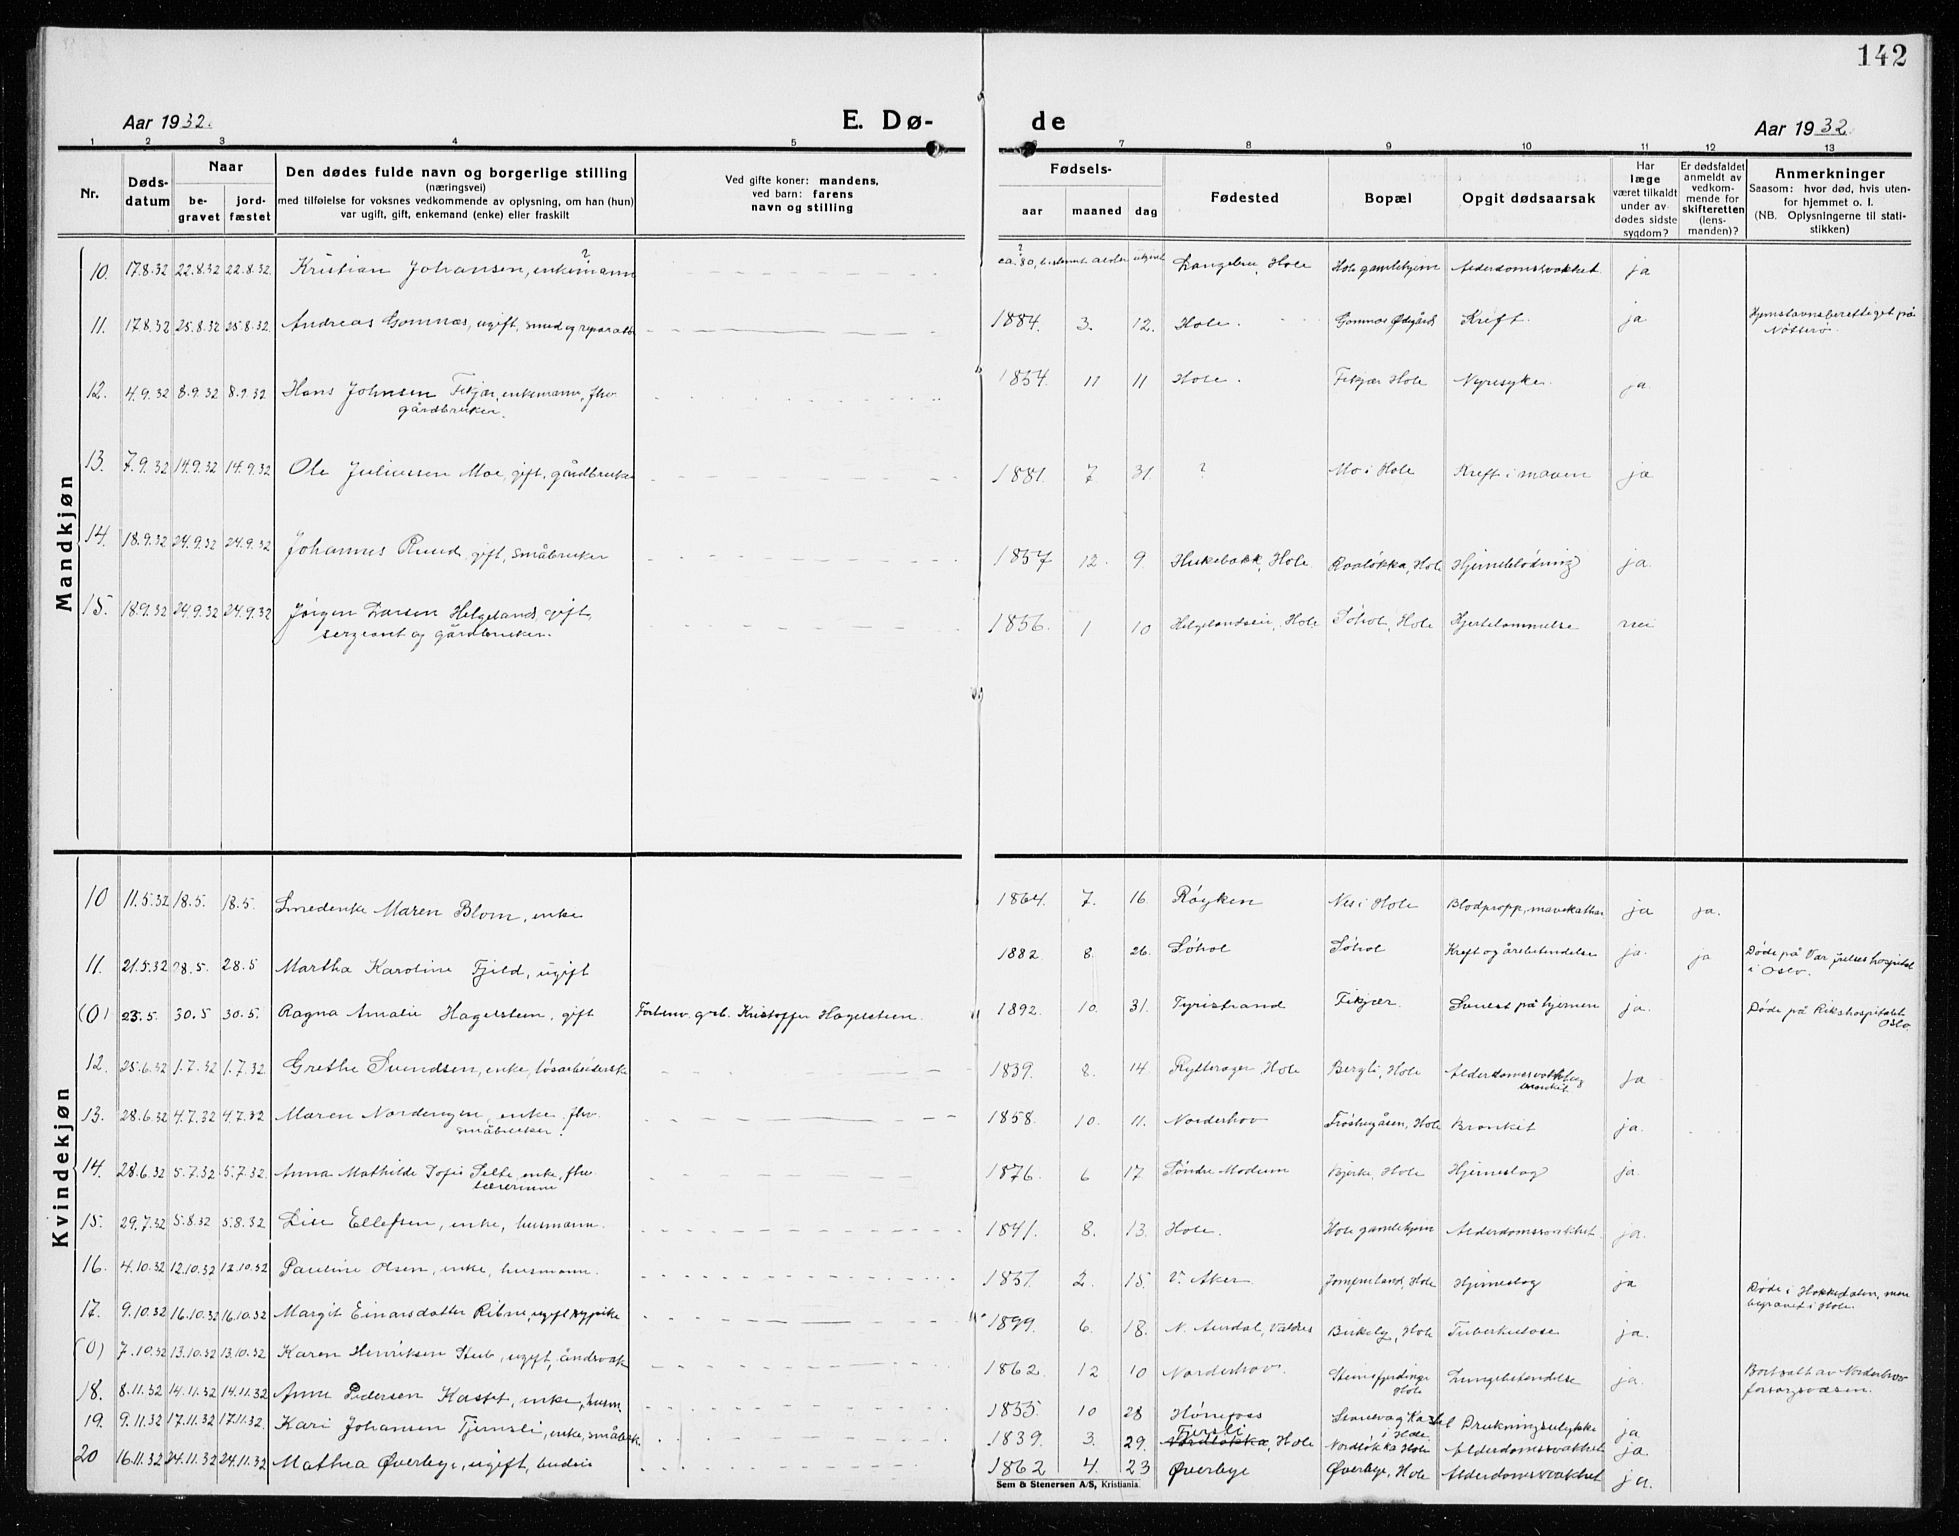 142
Aar 1932.
E. Dø-
de
Aar 1932.
1 2 3 4 5 6 7 8 9 10 11 12 13
Nr.
Døds-
datum
Naar
be-
gravet
jord-
fæstet
Den dødes fulde navn og borgerlige stilling
(næringsvei)
med tilføielse for voksnes vedkommende av oplysning, om han (hun)
var ugift, gift, enkemand (enke) eller fraskilt
Ved gifte koner: mandens,
ved barn: farens
navn og stilling
Fødsels-
aar maaned dag
Fødested
Bopæl
Opgit dødsaarsak
Har
læge
været tilkaldt
under av-
dødes sidste
sygdom?
Er dødsfaldet
anmeldt av
vedkom-
mende for
skifteretten
(lens-
manden)?
Anmerkninger
Saasom: hvor død, hvis uten-
for hjemmet o. l.
(NB. Oplysningerne til stati-
stikken)
Mandkjøn
10. 17.8.32 22.8.32 22.8.32 Kristian Johansen, enkemann ? ca. 80, bestemt alder utgivet ? Langebru, Hole Hole gamlehjem Alderdomssvakhet ja
11. 17.8.32 25.8.32 25.8.32 Andreas Gomnæs, ugift, smed og reparatør 1884. 3. 12. Hole. Gomnæs Ødegård Kreft. ja Hjemstavnsberettiget på
Nøtterø.
12. 4.9.32 8.9.32 8.9.32 Hans Johnsen Fekjær, enkemann, fhv.
gårdbruker. 1854. 11 11 Hole. Fekjær Hole Nyresyke. ja.
13. 7.9.32 14.9.32 14.9.32 Ole Juliussen Moe, gift, gårdbruker 1881. 7 31. ? Mo i Hole Kreft i maven ja
14. 18.9.32 24.9.32 24.9.32 Johannes Ruud, gift, småbruker 1857 12. 9 Hukebakk, Hole Roaløkka, Hole Hjerneblødning ja.
15. 18.9.32 24.9.32 24.9.32 Jørgen Larsen Helgeland, gift,
sergeant og gårdbruker. 1856. 1 10 Helgelandseie, Hole Søhol, Hole Hjertelammelse nei
Kvindekjøn
10 11.5.32 18.5. 18.5. Smedenke Maren Blom, enke 1864. 7. 16. Røyken Nes i Hole Blodpropp, mavekathar ja ja.
11. 21.5.32 28.5. 28.5 Martha Karoline Fjeld, ugift 1882 8. 26. Søhol Søhol Kreft og årebetendelse ja. ja Døde på Vår frelses hospital
i Oslo.
(0) 23.5. 30.5 30.5. Ragna Amalie Hagelsteen, gift Forhenv. grb. Kristoffer Hagelsteen. 1892. 10. 31. Tyristrand Fekjær. Svulst på hjernen ja. Døde på Rikshospitalet
Oslo
12. 25.6.32 1.7.32 1.7.32 Grethe Svendsen, enke, løsarbeiderske 1839. 8. 14. Rytterager Hole Bergli, Hole Alderdomssvakhet og
bronkit. ja
13. 28.6.32 4.7.32 4.7.32 Maren Nordengen, enke fhv.
småbruker. 1858. 10. 11. Norderhov Frøshaugåsen, Hole Bronkit ja.
14. 28.6.32 5.7.32 5.7.32 Anna Mathilde Sofie Selte, enke, fhv.
lærerinne 1876. 6 17. Søndre Modum Bjerke, Hole Hjerneslag ja.
15. 29.7.32 5.8.32 5.8.32 Lise Ellefsen, enke, husmann. 1841. 8. 13. Hole. Hole gamlehjem Alderdomssvakhet. ja.
16. 4.10.32 12.10.32 12.10.32 Pauline Olsen, enke, husmann. 1851. 2. 15. V. Aker Hole Hjerneslag ja
17. 9.10.32 16.10.32 16.10.32 Margit Einarsdatter Ribne, ugift sypike 1899. 6. 18. N. Aurdal, Valdres Birkely, Hole Tuberkulose ja. Døde i Hokkedalen, men
begravet i Hole.
(0) 7.10.32 13.10.32 13.10.32 Karen Henriksen Stub, ugift, åndsvak 1862. 12 10 Norderhov. Steinsfjerdingen
Hole Lungebetendelse ja. Bortsatt av Norderhov
forsorgsvæsen.
18. 8.11.32 14.11.32 14.11.32 Anne Pedersen Kastet, enke, husm. 1855. 10 28 Hønefoss Kastet
i Hole Drukningsulykke ja
19. 9.11.32 17.11.32 17.11.32 Kari Johansen Tjernsli, enke, småbruk. 1839. 3. 29. Tjernsli
Nordløkka, Hole Nordløkka Hole Alderdomssvakhet ja.
20 16.11.32 24.11.32 24.11.32 Mathea Øverbye, ugift, budeie 1862 4. 23 Øverbye Øverbye, Hole Alderdomssvakhet ja.
Sem & Stenersen A/S, Kristiania.